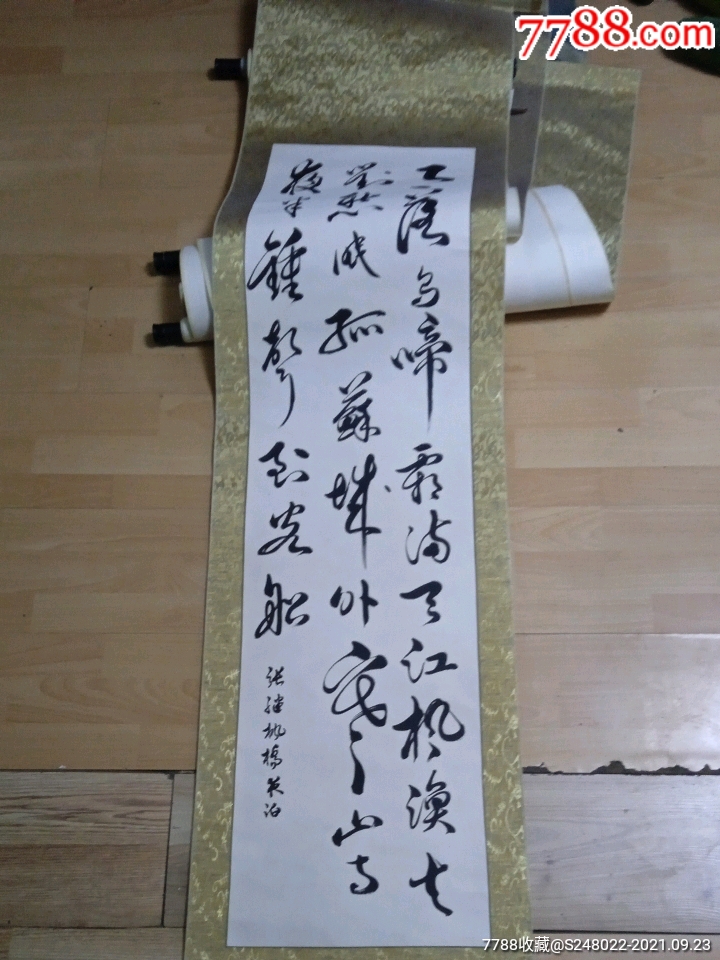 7788.com
月落烏啼霜满天江枫渔火
對愁眠姑蘇城外寒山寺
夜半鍾聲到客船
张继枫橋夜泊
7788收藏@S248022-2021.09.23